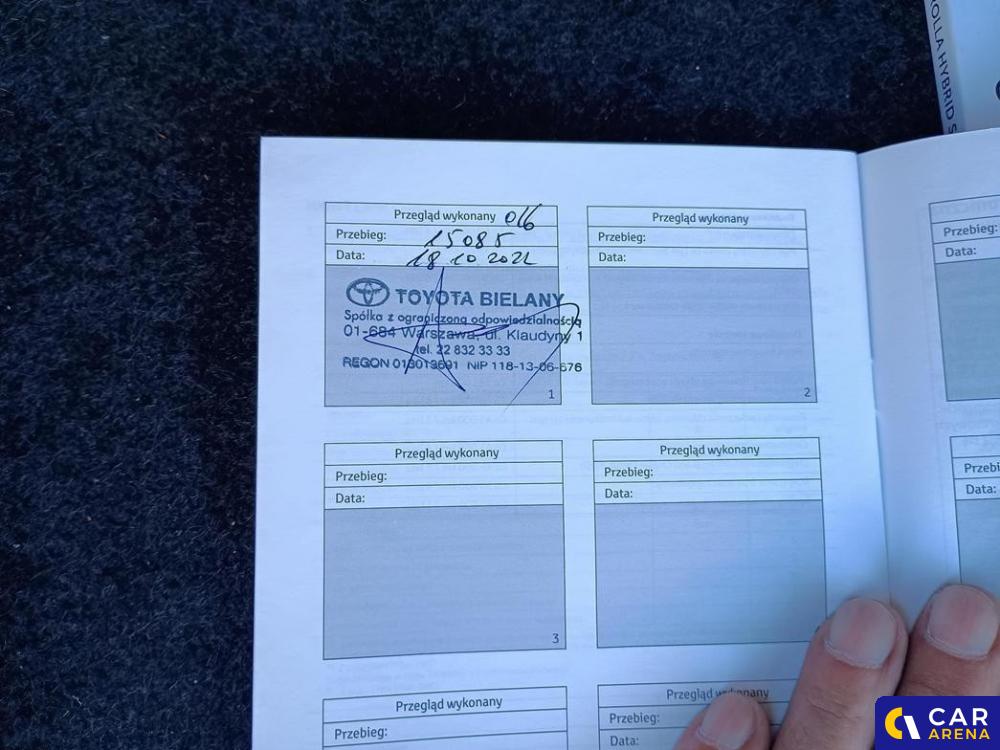 ROLLA HYBRID S
Przegląd wykonany 016
Przebieg: 15085
Data: 18.10.2022
TOYOTA BIELANY
Spółka z ograniczoną odpowiedzialnością
01-684 Warszawa, ul. Klaudyny 1
tel. 22 832 33 33
REGON 013013691 NIP 118-13-06-676
1
Przegląd wykonany
Przebieg:
Data:
2
Przebieg:
Data:
Przegląd wykonany
Przebieg:
Data:
3
Przegląd wykonany
Przebieg:
Data:
Przebi
Data:
Przegląd wykonany
Przebieg:
Przegląd wykonany
Przebieg:
Data:
CAR
ARENA